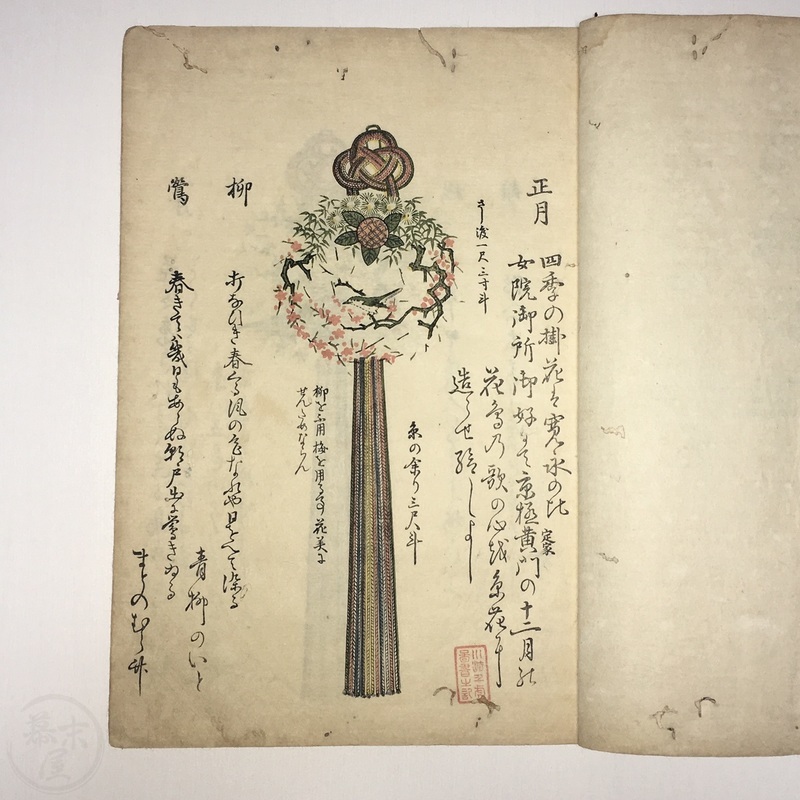 正月
四季の掛花は寛永の比
女院御所御好にて京極黄門定家の十二月の
花鳥の歌の心を糸花に
造らせ給ひしよし
さし渡一尺三寸斗
糸の余り三尺斗
柳を不用梅を用るは花美に
せんためならん
柳
打なひき春くる風の色なれや日をへて染る
青柳のいと
鶯
春きては幾日もあらぬ朝戸出に鶯きゐる
まとのむら竹
幕末屋